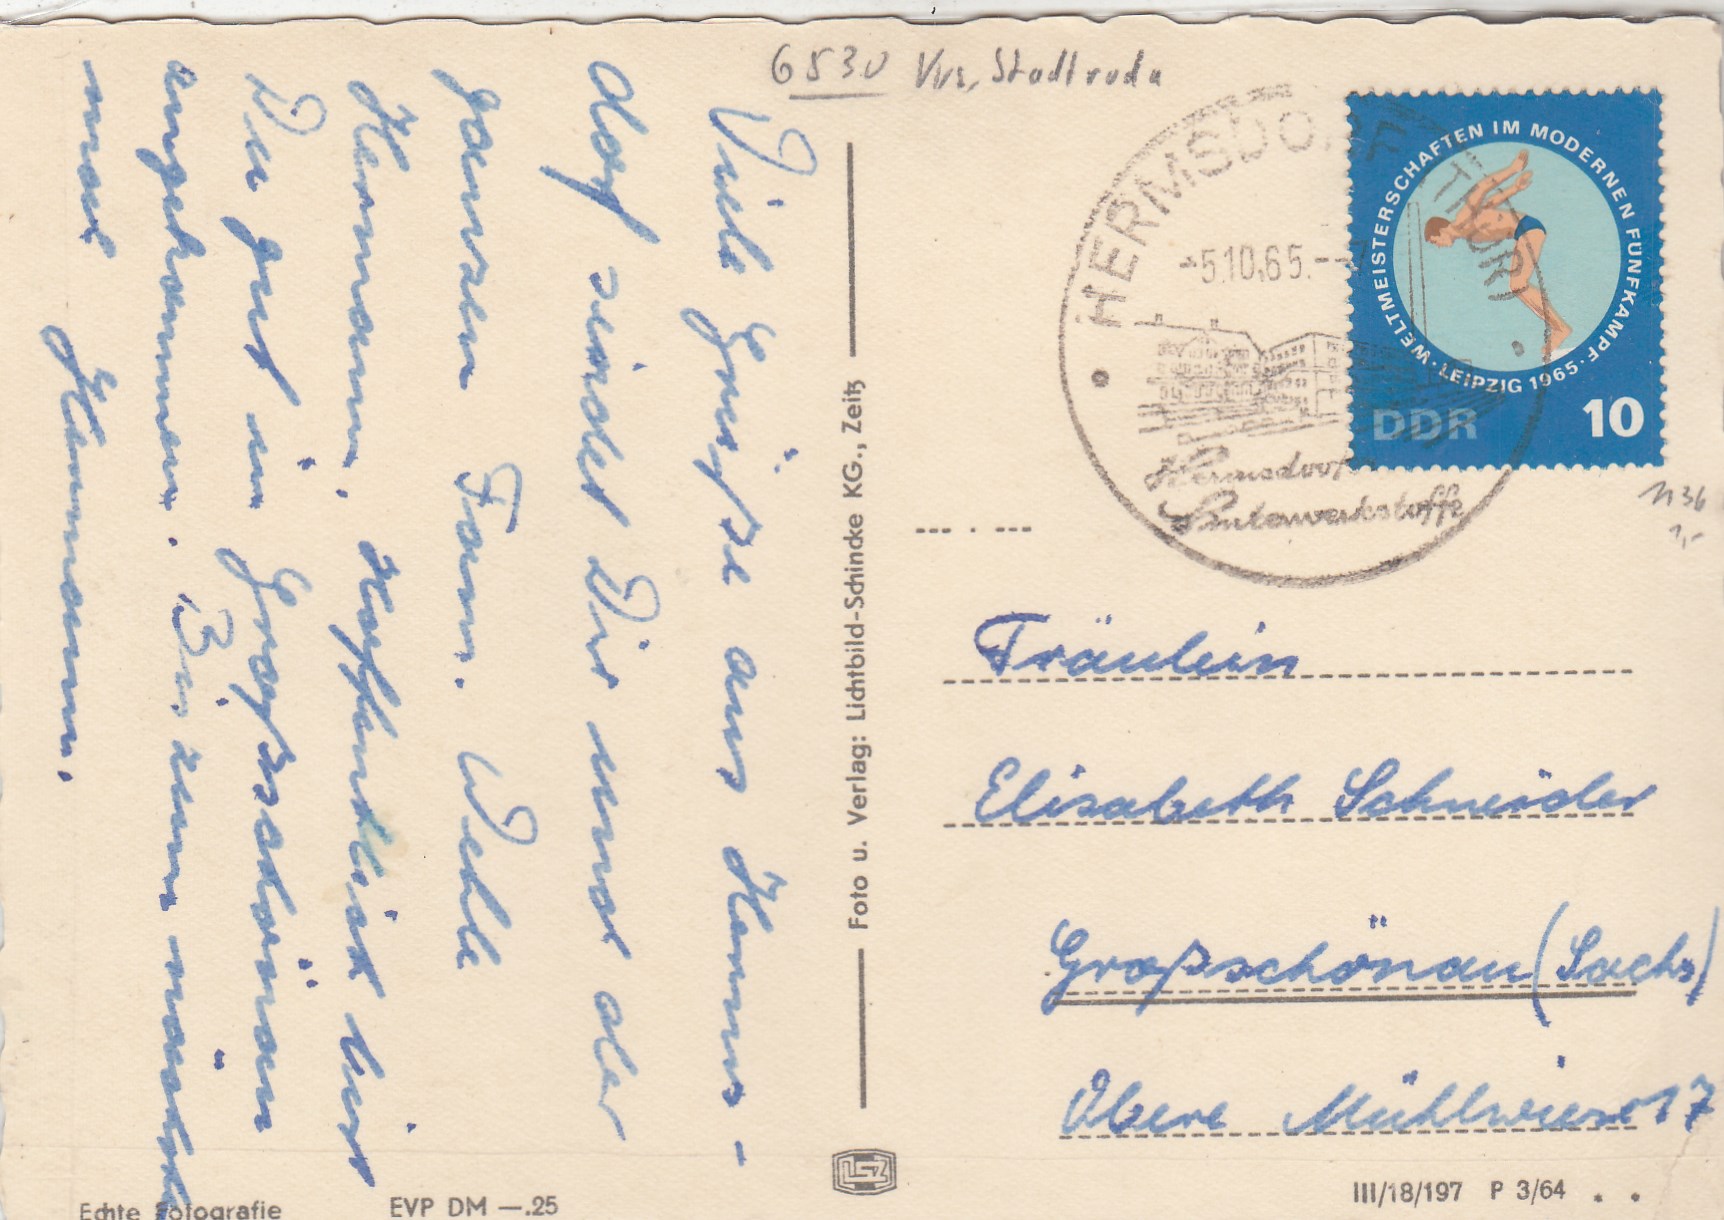 6530 Krs. Stadtroda
HERMSDORF (THÜR)
-5.10.65.--7
Hermsdorf
Sinterwerkstoffe
WELTMEISTERSCHAFTEN IM MODERNEN FÜNFKAMPF · LEIPZIG 1965 ·
DDR 10
1136
1,-
Viele Grüße aus Herms-
dorf sendet Dir und der
ganzen Fam. Wehle
Hermann. Hoffentlich bist
Du gut in Großschönau
angekommen. Bis zum nächsten
mal
Hermann.
Foto u. Verlag: Lichtbild-Schincke KG., Zeitz
Fräulein
Elisabeth Schneider
Großschönau (Sachs)
Obere Mühlwiese 17
Echte Fotografie EVP DM —.25
III/18/197 P 3/64